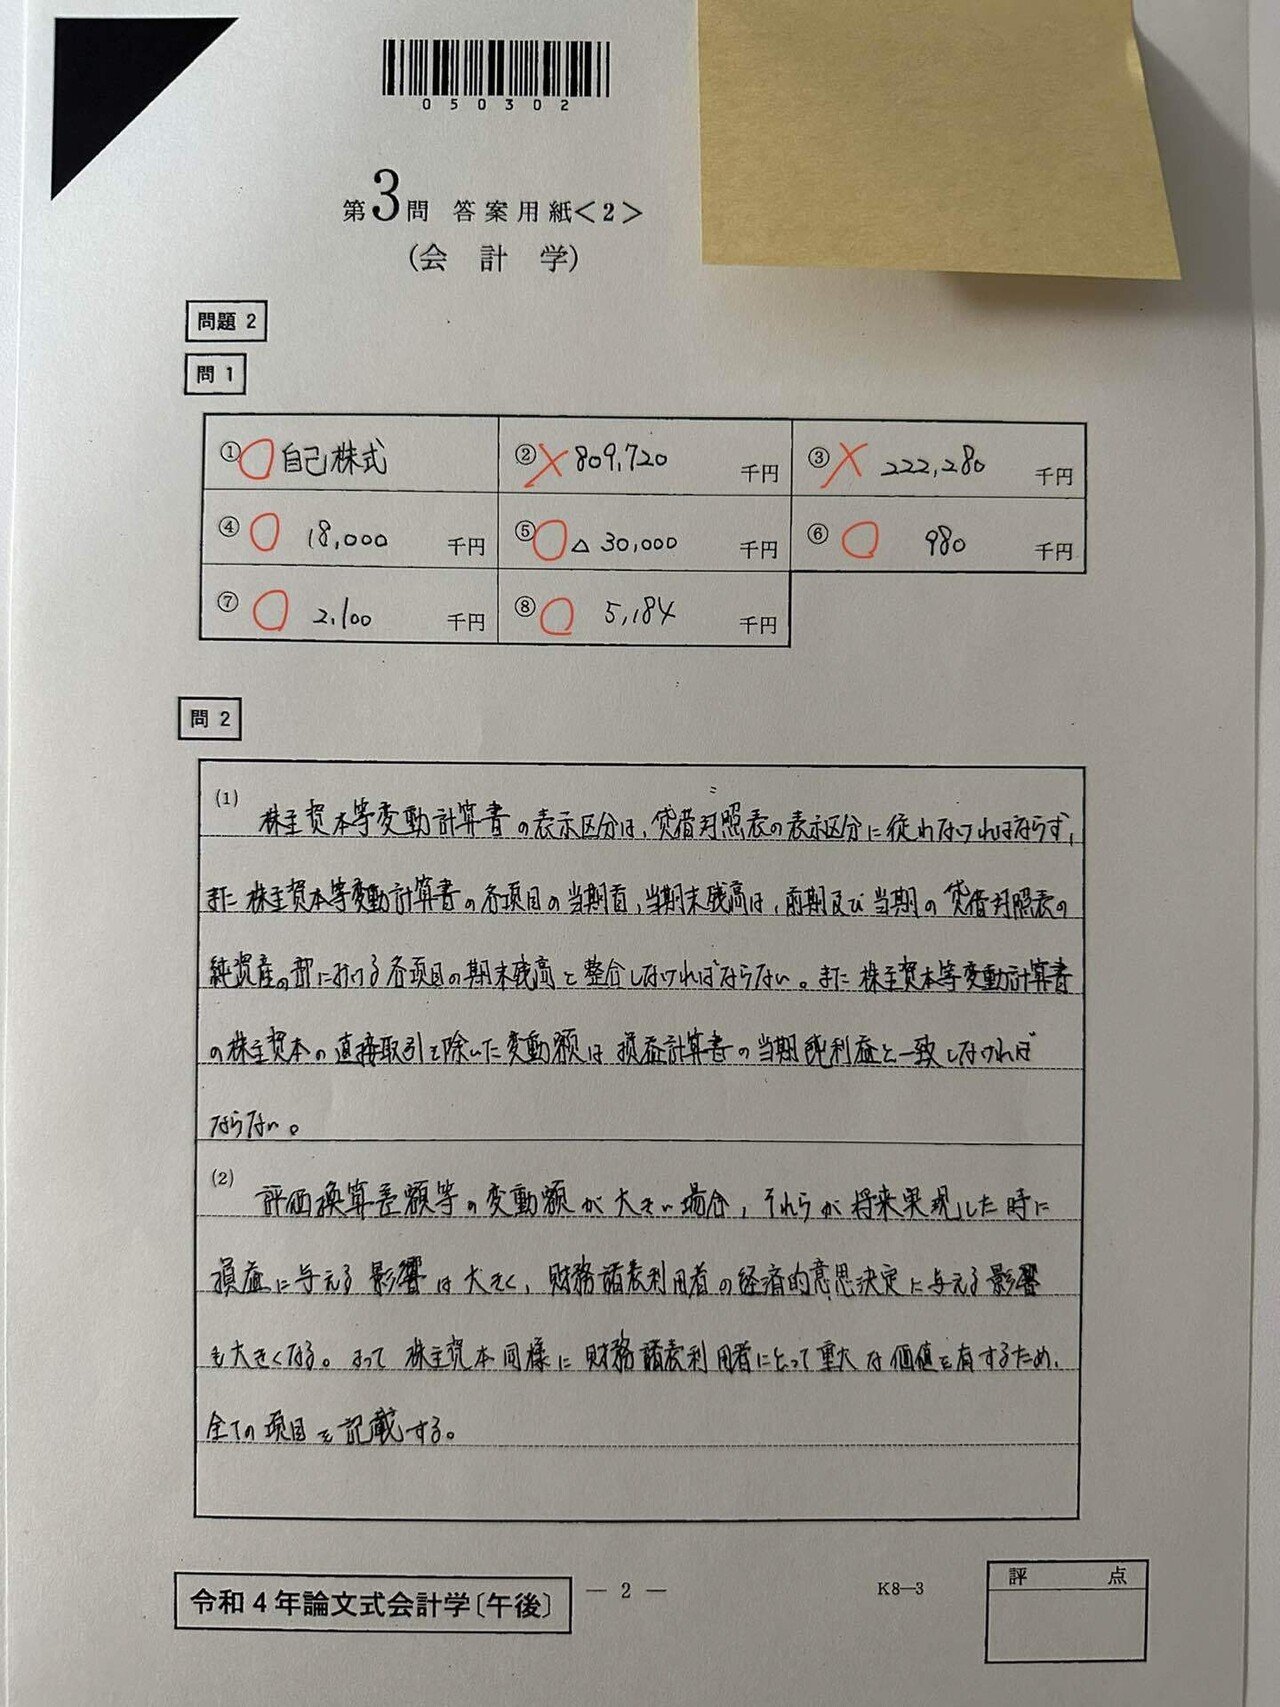 050302
第3問 答案用紙<2>
(会計学)
問題2
問1
① 自己株式
② 809,720 千円
③ 222,280 千円
④ 18,000 千円
⑤ △30,000 千円
⑥ 980 千円
⑦ 2,100 千円
⑧ 5,184 千円
問2
(1) 株主資本等変動計算書の表示区分は、貸借対照表の表示区分に従わなければならず、
また株主資本等変動計算書の各項目の当期首、当期末残高は、前期及び当期の貸借対照表の
純資産の部における各項目の期末残高と整合しなければならない。また株主資本等変動計算書
の株主資本の直接取引を除いた変動額は損益計算書の当期純利益と一致しなければ
ならない。
(2) 評価換算差額等の変動額が大きい場合、それらが将来実現した時に
損益に与える影響は大きく、財務諸表利用者の経済的意思決定に与える影響
も大きくなる。よって株主資本同様に財務諸表利用者にとって重大な価値を有するため、
全ての項目を記載する。
令和4年論文式会計学〔午後〕
― 2 ―
K8―3
評点